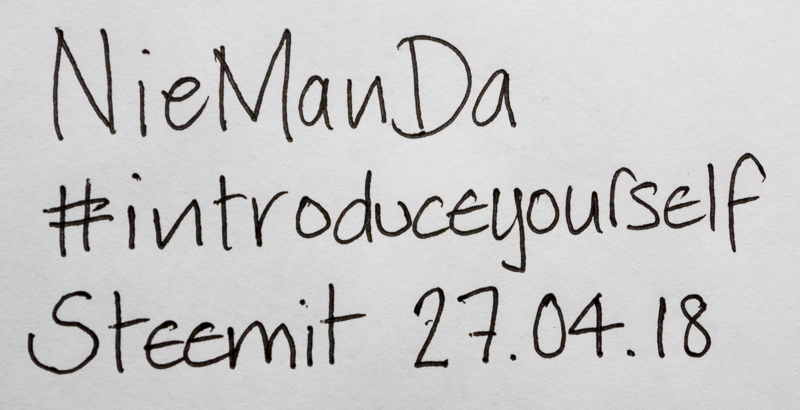 NieManDa
#introduceyourself
Steemit 27.04.18